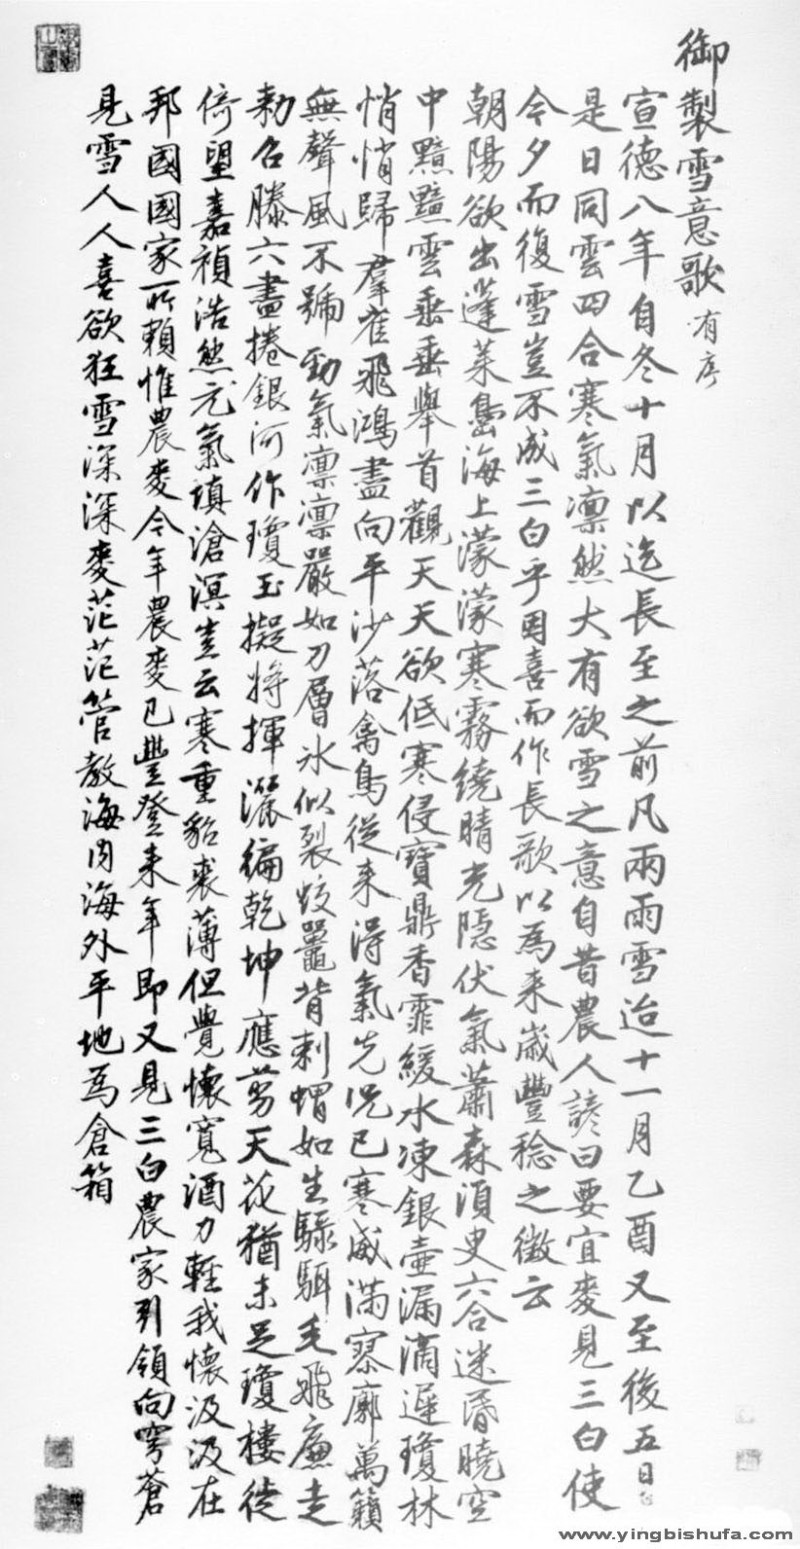 御製雪意歌 有序
宣德八年自冬十月以迄長至之前凡兩雨雪迨十一月乙酉又至後五日也
是日同雲四合寒氣凛然大有欲雪之意自昔農人諺曰要宜麥見三白使
今夕而復雪豈不成三白乎因喜而作長歌以為来歲豐稔之徵云
朝陽欲出蓬莱㠀海上濛濛寒霧繞晴光隱伏氣蕭森湏臾六合迷昏曉空
中黯黯雲垂垂舉首觀天天欲低寒侵寶鼎香霏緩水凍銀壷漏滴遲瓊林
悄悄歸羣雀飛鴻盡向平沙落禽鳥從来得氣先况已寒威滿寥廓萬籟
無聲風不號勁氣凛凛嚴如刀層氷似裂蛟鼉背刺蝟如生騄駬毛飛廉走
勅召滕六盡捲銀河作瓊玉擬将揮灑徧乾坤應剪天花猶未足瓊樓徙
倚望嘉禎浩然元氣填滄溟豈云寒重貂裘薄但覺懐寬酒力輕我懐汲汲在
邦國國家所賴惟農麥今年農麥已豐登来年即又見三白農家引領向穹蒼
見雪人人喜欲狂雪深深麥茫茫管教海内海外平地為倉箱
www.yingbishufa.com